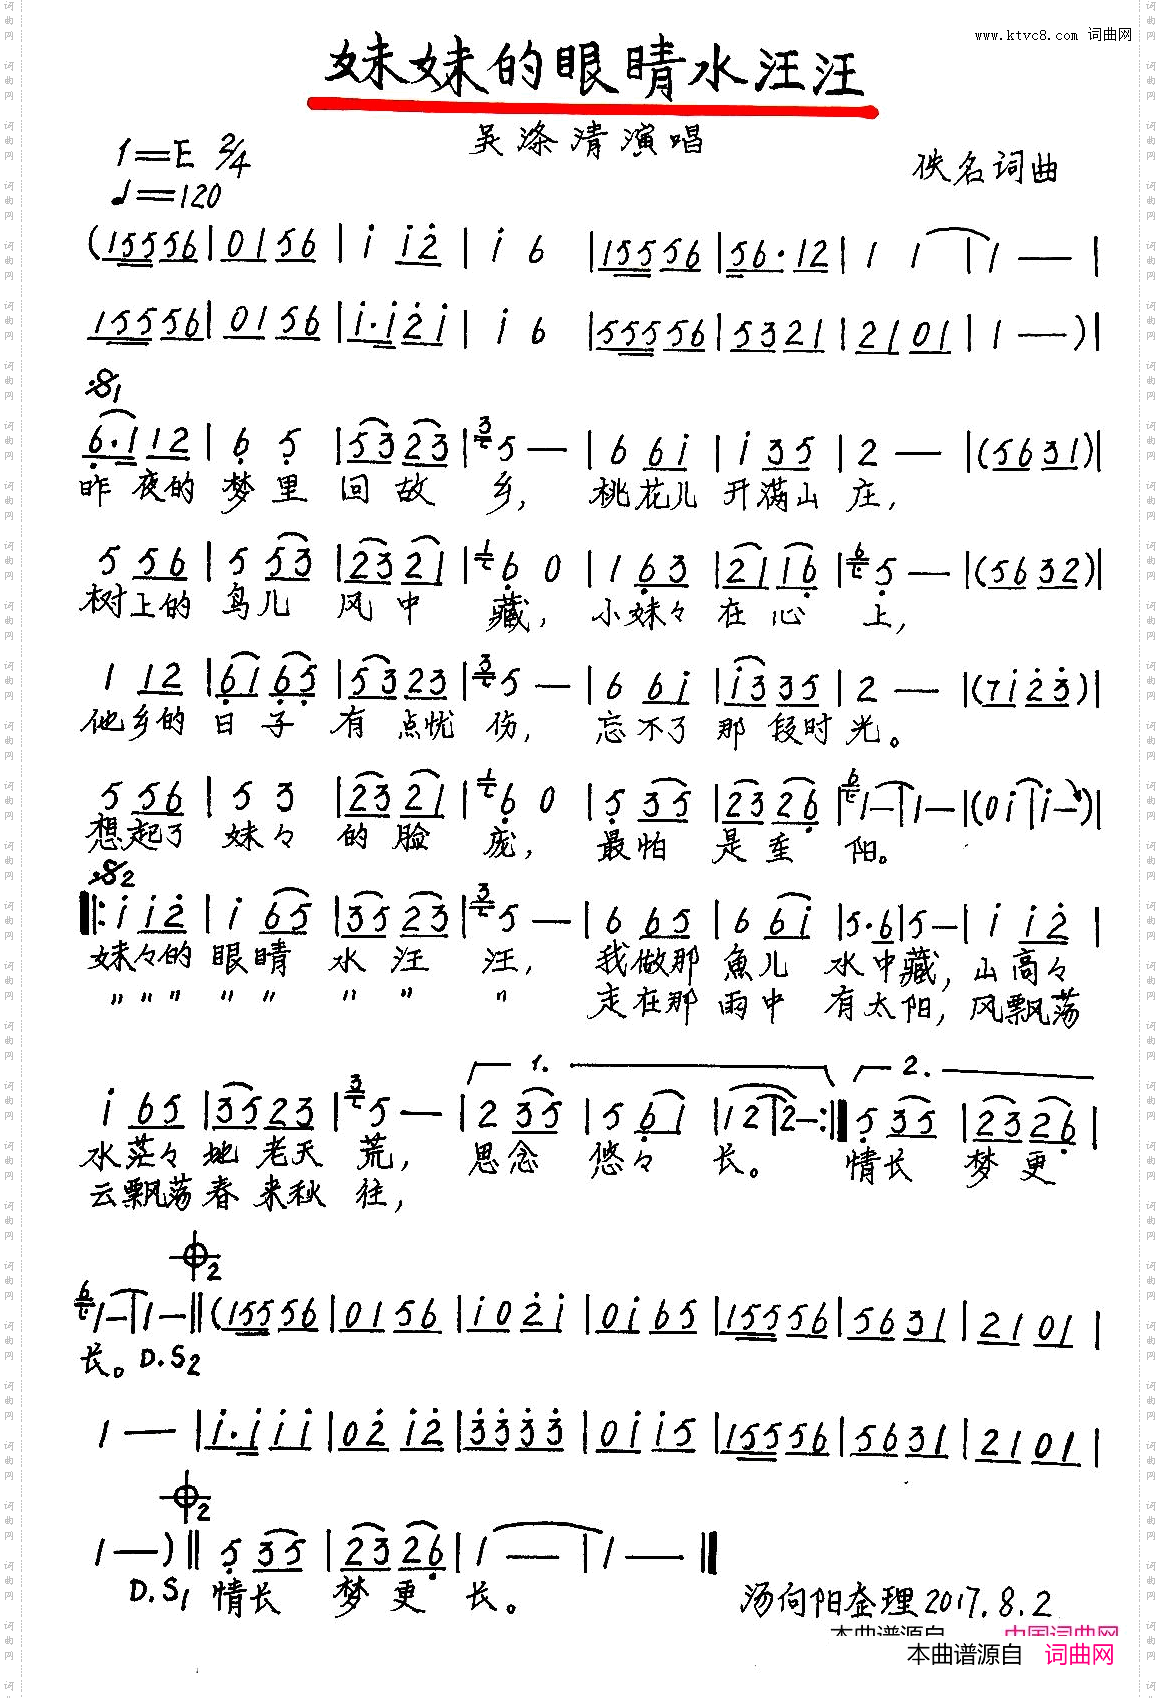 www.ktvc8.com 词曲网
妹妹的眼睛水汪汪
吴涤清演唱
1=E 2/4
佚名词曲
♩=120
(15556|0156|i i2̇|i 6|15556|56·12|1 1|1 —|
15556|0156|i·i2̇i|i 6|55556|5321|2101|1 —)|
𝄋1
6̣·112|6̣ 5̣|5323|5 —|6 66i|i 35|2 —|(5631)|
昨夜的梦里回故乡,桃花儿开满山庄,
5 56|5 53|2321|6̣ 0|1 6̣3|2116̣|5̣ —|(5632)|
树上的鸟儿风中藏,小妹々在心上,
1 12|6̣16̣5̣|5323|5 —|6 66i|i335|2 —|(7i2̇3̇)|
他乡的日子有点忧伤,忘不了那段时光。
5 56|5 3|2321|6̣ 0|5̣ 35|2326̣|1—|1—|(0i|i—)|
想起了妹々的脸庞,最怕是重阳。
𝄋2
‖:i i2̇|i 65|3523|5 —|6 65|6 6i|5·6|5—|i i2̇|
妹々的眼睛水汪汪,我做那鱼儿水中藏,山高々
〃〃〃〃〃〃〃〃走在那雨中有太阳,风飘荡
1. 2.
i 65|3523|5 —|2 35|5 6̣1|12|2—:‖5̣ 35|2326̣|
水茫々地老天荒,思念悠々长。情长梦更
云飘荡春来秋往,
𝄌2
1—|1—‖(15556|0156|i02̇i|0i65|15556|5631|2101|
长。D.S2
1 —|i·iii|02̇i2̇|3̇3̇3̇3̇|0ii5|15556|5631|2101|
𝄌2
1—)‖5̣ 35|2326̣|1 —|1 —‖
D.S1 情长梦更长。
汤向阳整理2017.8.2
本曲谱源自 中国词曲网
本曲谱源自 词曲网